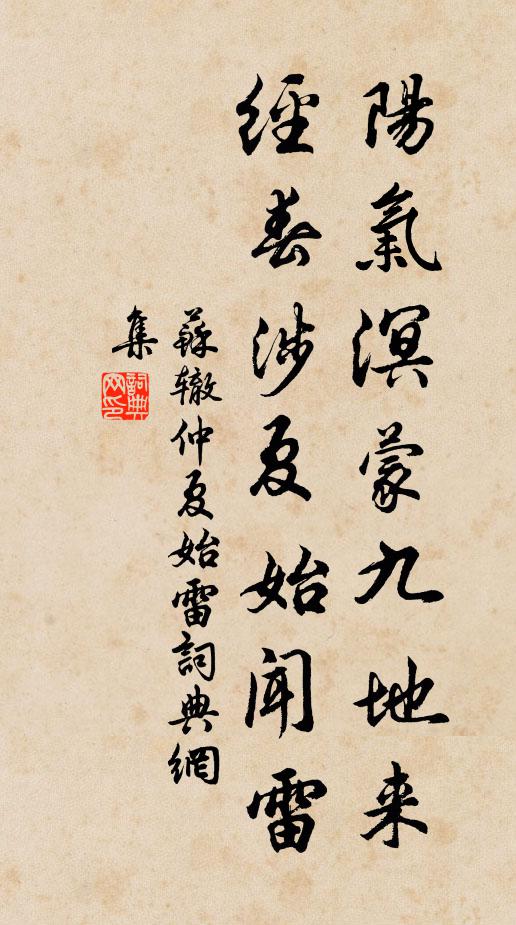 陽氣溟蒙九地来
經春涉夏始聞雷
蘇辙仲夏始雷詞典網
集
詞典網印